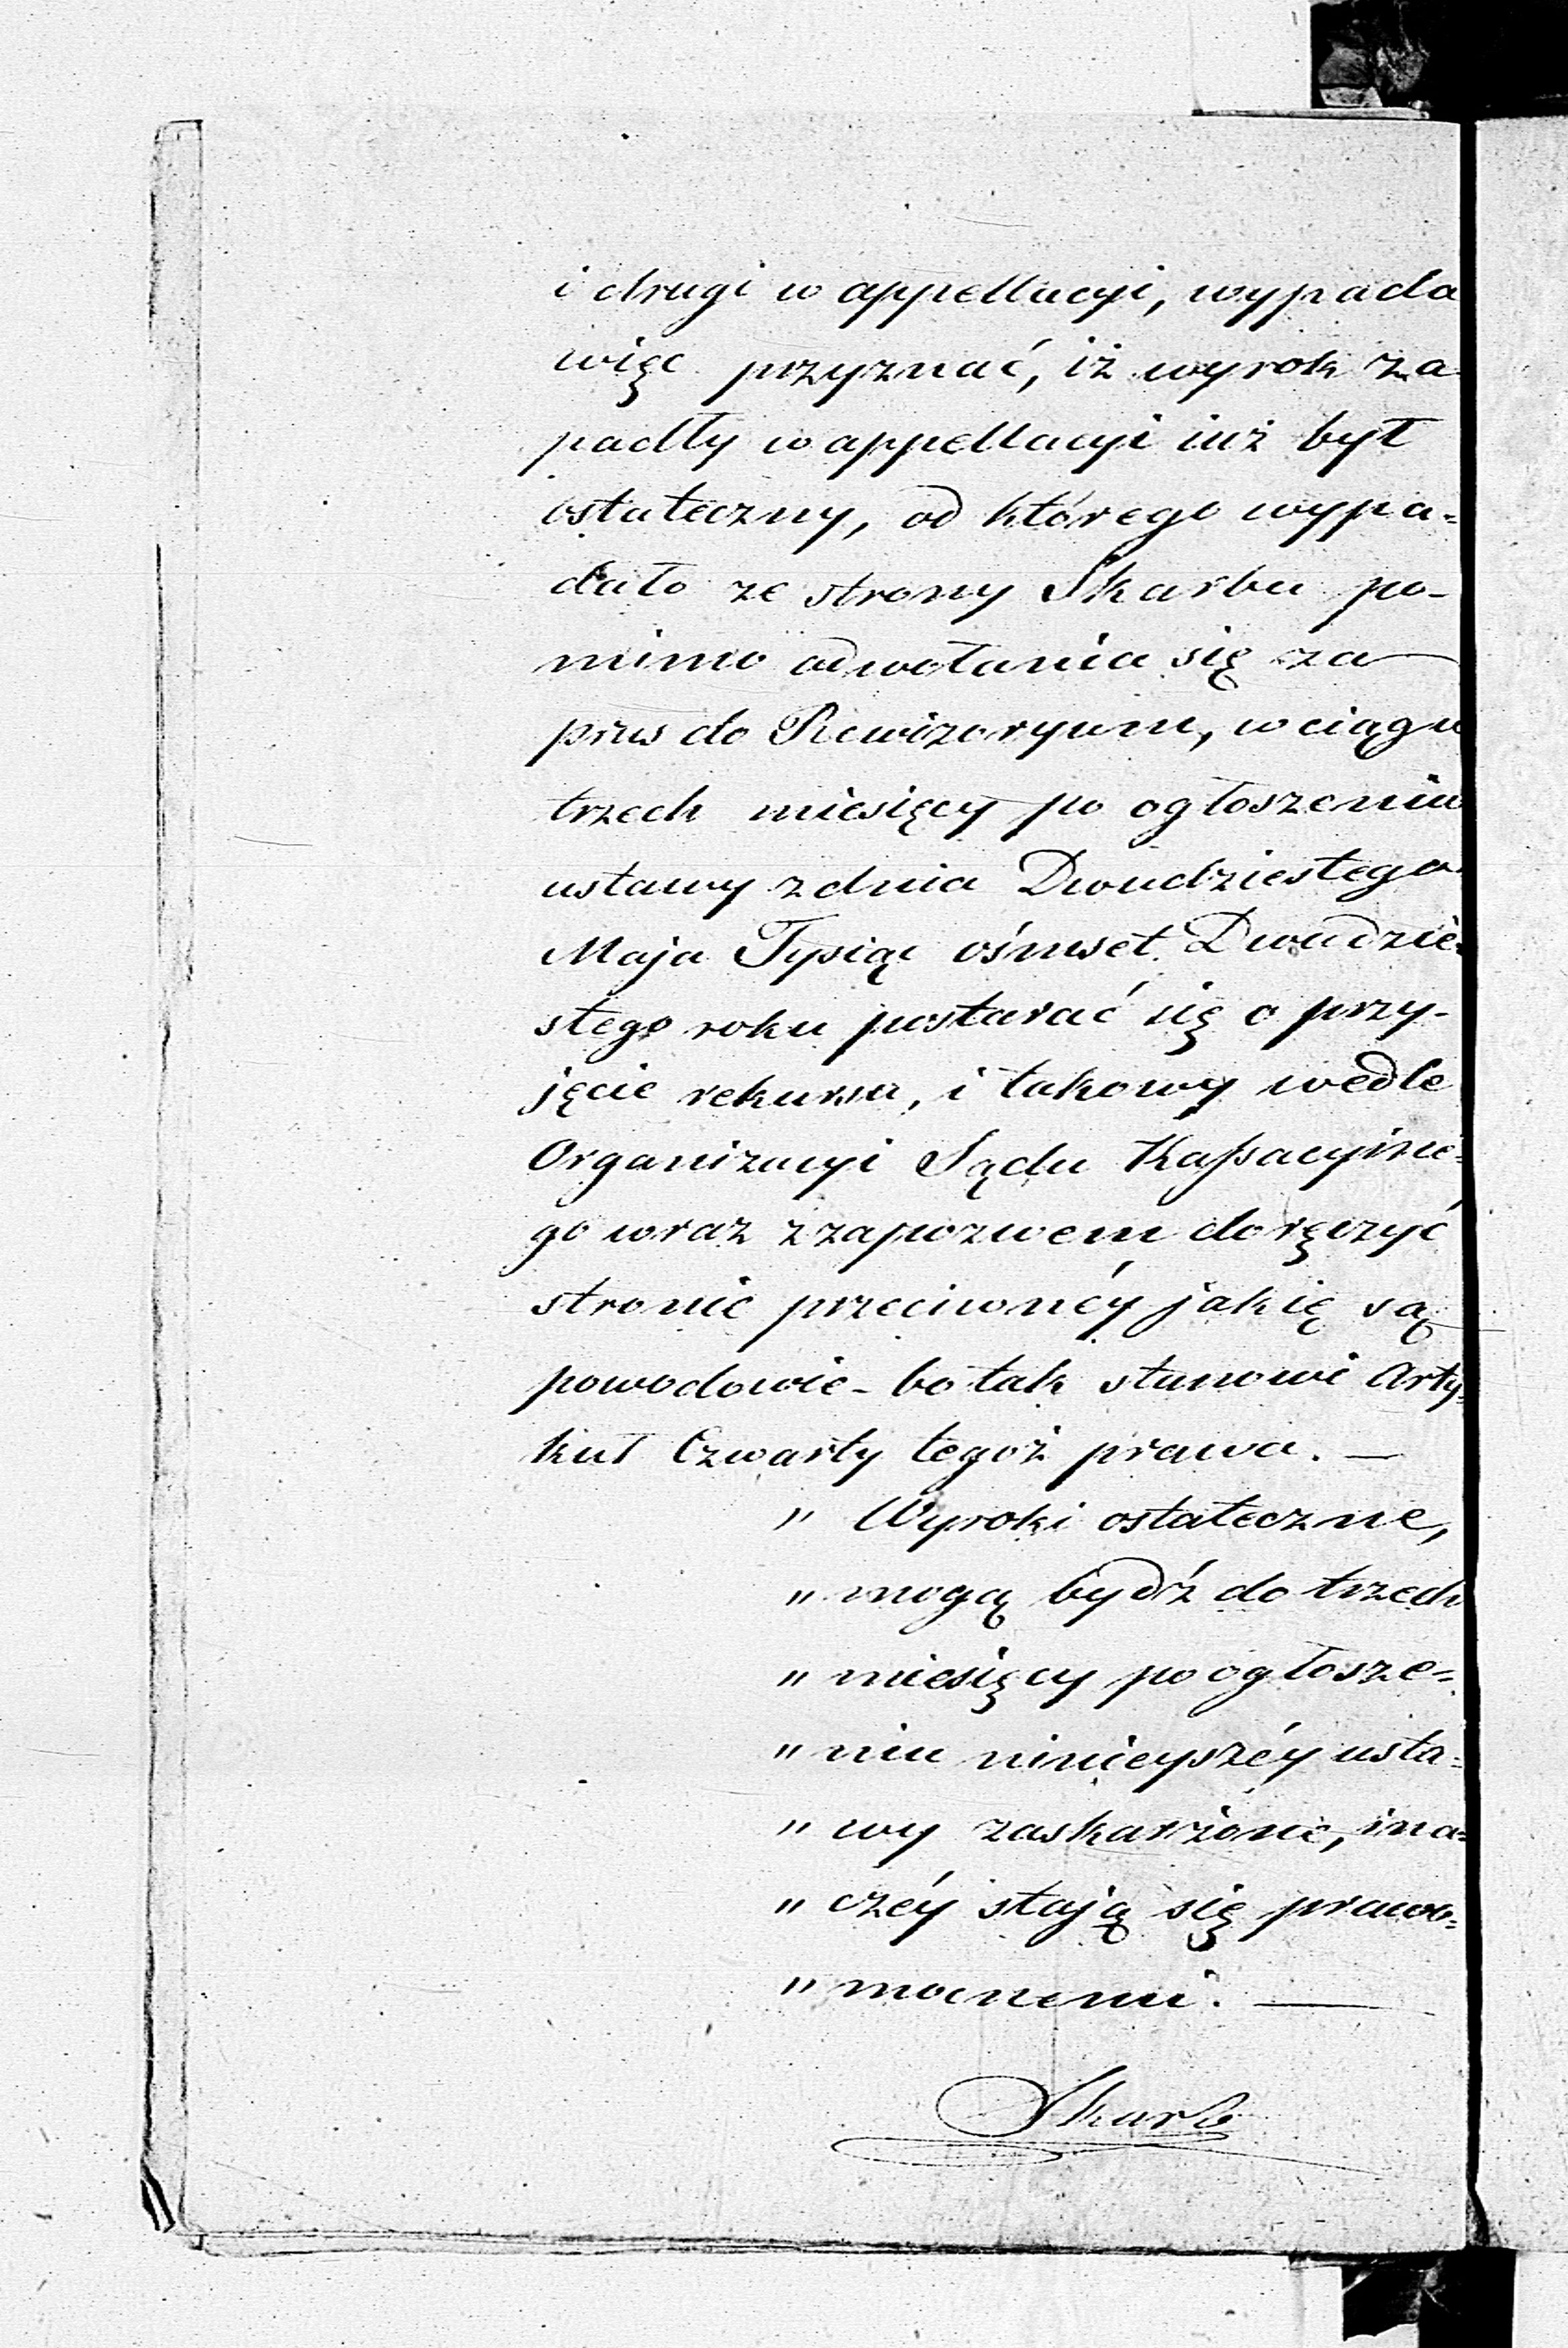 i drugi w appellacyi, wypada
więc przyznać, iż wyrok za
padły w appellacyi iuż był
ostateczny, od którego wypa=
dało ze strony Skarbu po-
mimo odwołania się za
prus do Rewizoryum, w ciągu
trzech miesięcy po ogłoszeniu
ustawy z dnia Dwudziestego
Maja Tysiąc ośmset Dwudzie=
stego roku postarać się o przy-
jęcie rekursu, i takowy wedle
Organizacyi Sądu Kassacyine=
go wraz z zapozwem doręczyć
stronie przeciwnéy jakię są
powodowie - bo tak stanowi Arty=
kuł Czwarty tegoż prawa. —
" Wyroki ostateczne,
" mogą bydź do trzech
" miesięcy po ogłosze=
" niu ninieyszéy usta=
" wy zaskarżone, ina=
" czéy stają się prawo=
" mocnemi. —
Skarb